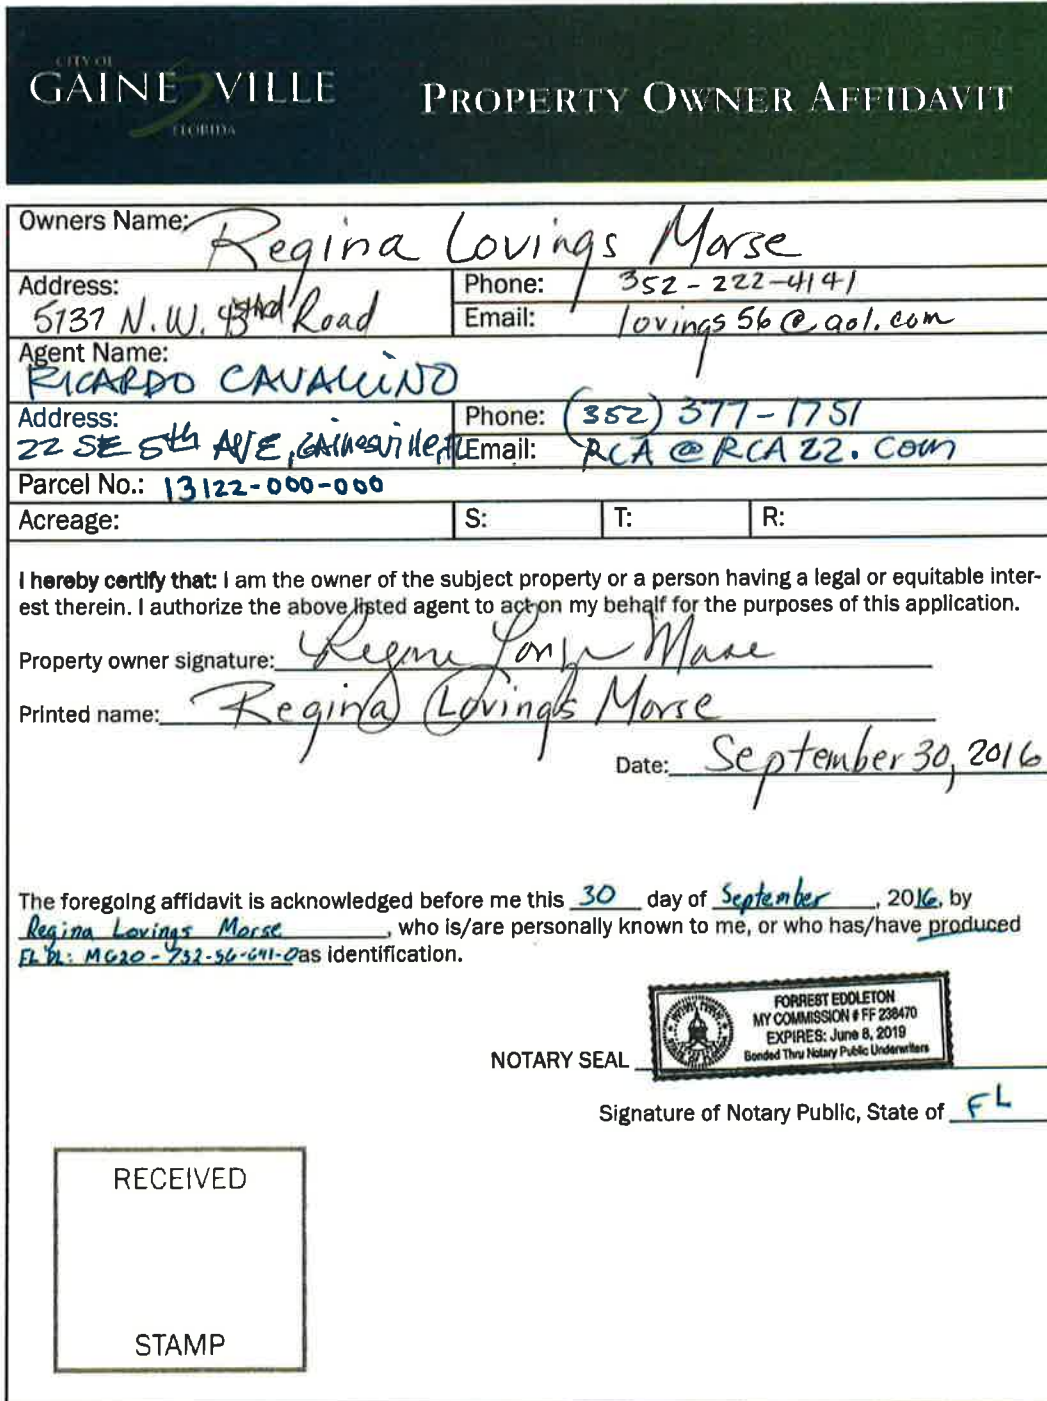 CITY OF
GAINESVILLE
FLORIDA
PROPERTY OWNER AFFIDAVIT
Owners Name: Regina Lovings Morse
Address: Phone: 352-222-4141
5137 N.W. Road Email: lovings56@aol.com
Agent Name:
RICARDO CAVALLINO
Address: Phone: (352) 377-1751
22 SE 5th AVE, GAinesville, FL Email: RCA@RCA22.com
Parcel No.: 13122-000-000
Acreage: S: T: R:
I hereby certify that: I am the owner of the subject property or a person having a legal or equitable inter-
est therein. I authorize the above listed agent to act on my behalf for the purposes of this application.
Property owner signature: Regina Lovings Morse
Printed name: Regina Lovings Morse
Date: September 30, 2016
The foregoing affidavit is acknowledged before me this 30 day of September, 2016, by
Regina Lovings Morse, who is/are personally known to me, or who has/have produced
FL DL: M620-732-56-641-0 as identification.
FORREST EDDLETON
MY COMMISSION # FF 238470
EXPIRES: June 8, 2019
Bonded Thru Notary Public Underwriters
NOTARY SEAL
Signature of Notary Public, State of FL
RECEIVED
STAMP